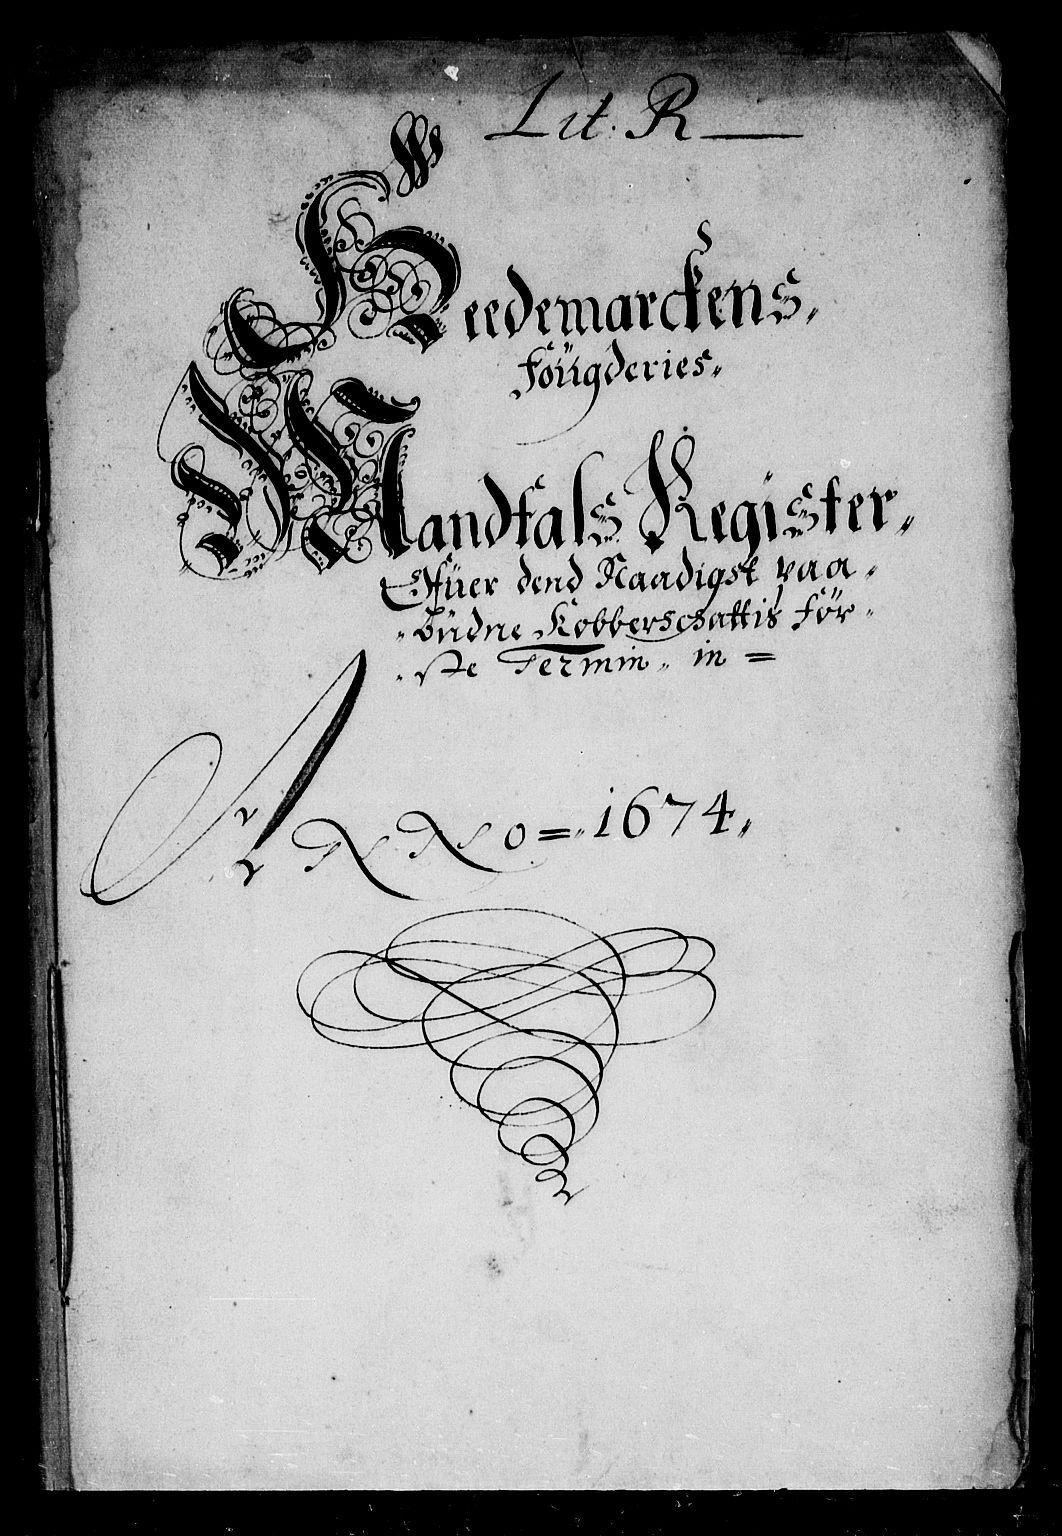 Lit. R
Heedemarckens,
föügderies,
Mandtals Register,
Offüer dend Naadigst paa-
büdne Kobberscsattis för-
ste Termin, in =
ANNO = 1674,